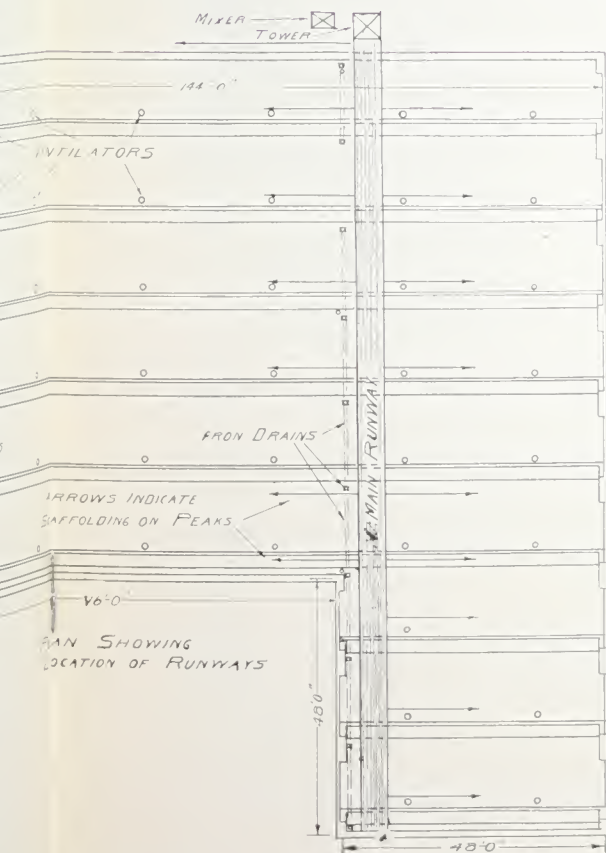 MIXER
TOWER
144'-0"
NTILATORS
IRON DRAINS
MAIN RUNWAY
RROWS INDICATE
AFFOLDING ON PEAKS
-0"
AN SHOWING
OCATION OF RUNWAYS
48'-0"
48'-0